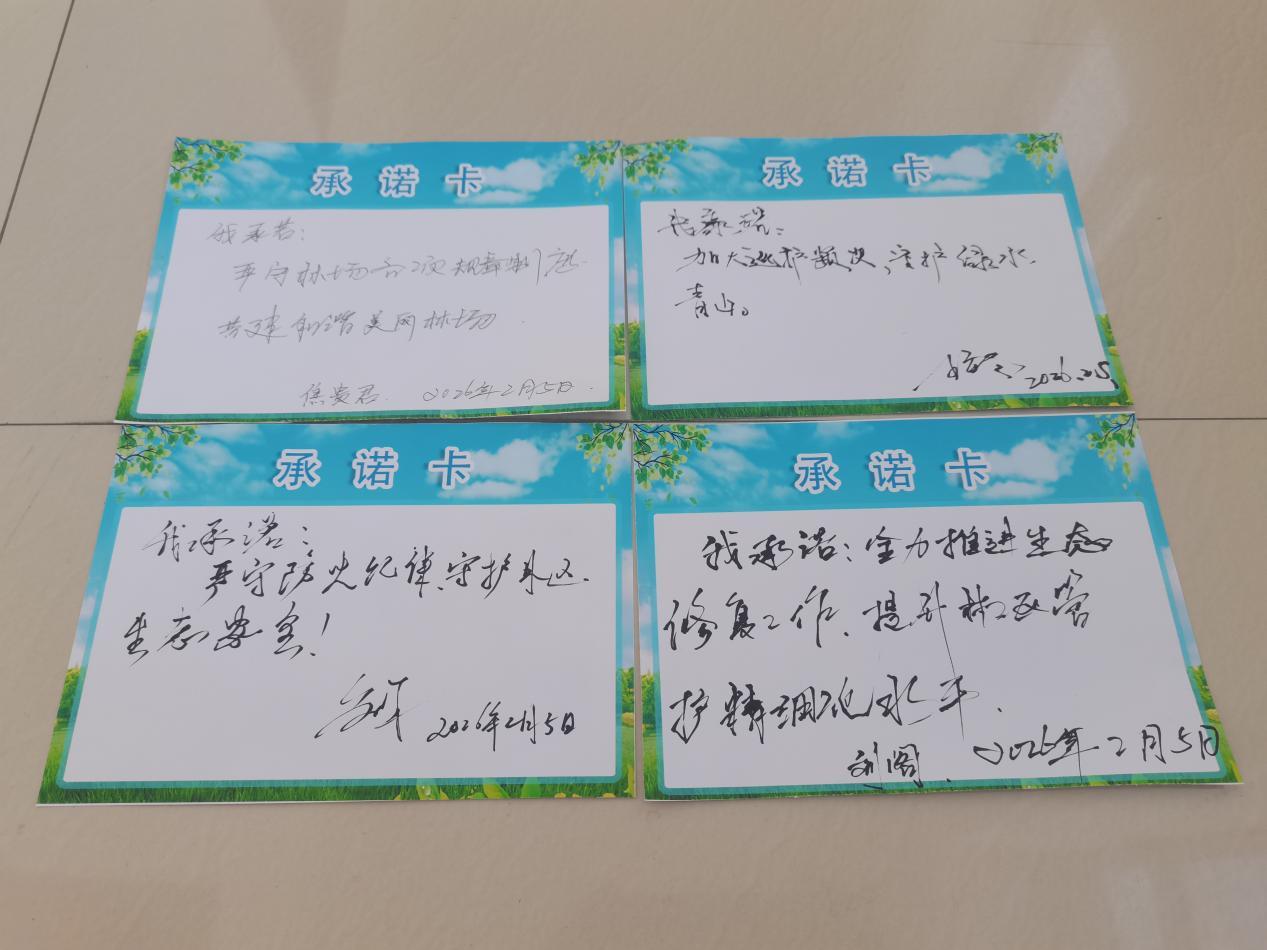 承诺卡
我承若:
严守林场各项规章制度.
共建和谐美网林场.
2026年2月5日.
承诺卡
我承诺:
加大巡护频次,守护绿水
青山。
2026.2.5
承诺卡
我承诺:
严守防火纪律、守护林区
生态安全!
2026年2月5日
承诺卡
我承诺:全力推进生态
修复工作、提升林区管
护精细化水平.
刘阁. 2026年2月5日